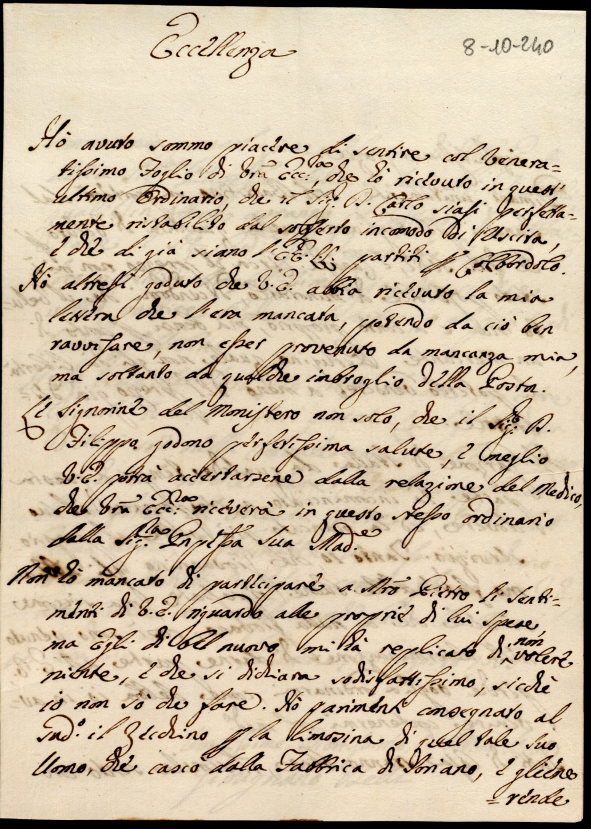 8-10-240
Eccellenza
Hò avuto sommo piacére di sentire col Venera=
tissimo Foglio di Vrã Ecc:za, che hò ricévuto in quest'
ultimo Ordinario, che il Sig: D. Carlo siasi perfetta=
mente ristabilito dal sofferto incomodo di Uscita,
è che di già siano l'EE. VV. partiti p Colbordolo.
Hò altresì goduto che V. E. abbia ricévuto la mia
lettera che l'era mancata, potendo da ciò ben
ravvisare, non esser provenuto da mancanza mia,
ma soltanto da qualche imbroglio della Posta.
Le Signorine del Monistero non solo, che il Sig:r D.
Filippo godono perfetissima salute, è meglio
V. E. potrà accertarsene dalla relazione del Medico,
che Vrã Ecc:za riceverà in questo stesso ordinario
dalla Sig:ra Cntessa Sua Mad:e
Non hò mancato di participare a Mrõ Pietro li senti=
menti di V. E. riguardo alle proprie di lui Spese
ma Egli di bel nuovo mi hà replicato di non volere
niente, è che si dichiara sodisfattissimo, sicché
io non sò che fare. Hò pariment consegnato al
Sud:o il Zecchino p la limosina di quel tale suo
Uomo, che cascò dalla Fabbrica di Soriano, è gliéne
=rénde